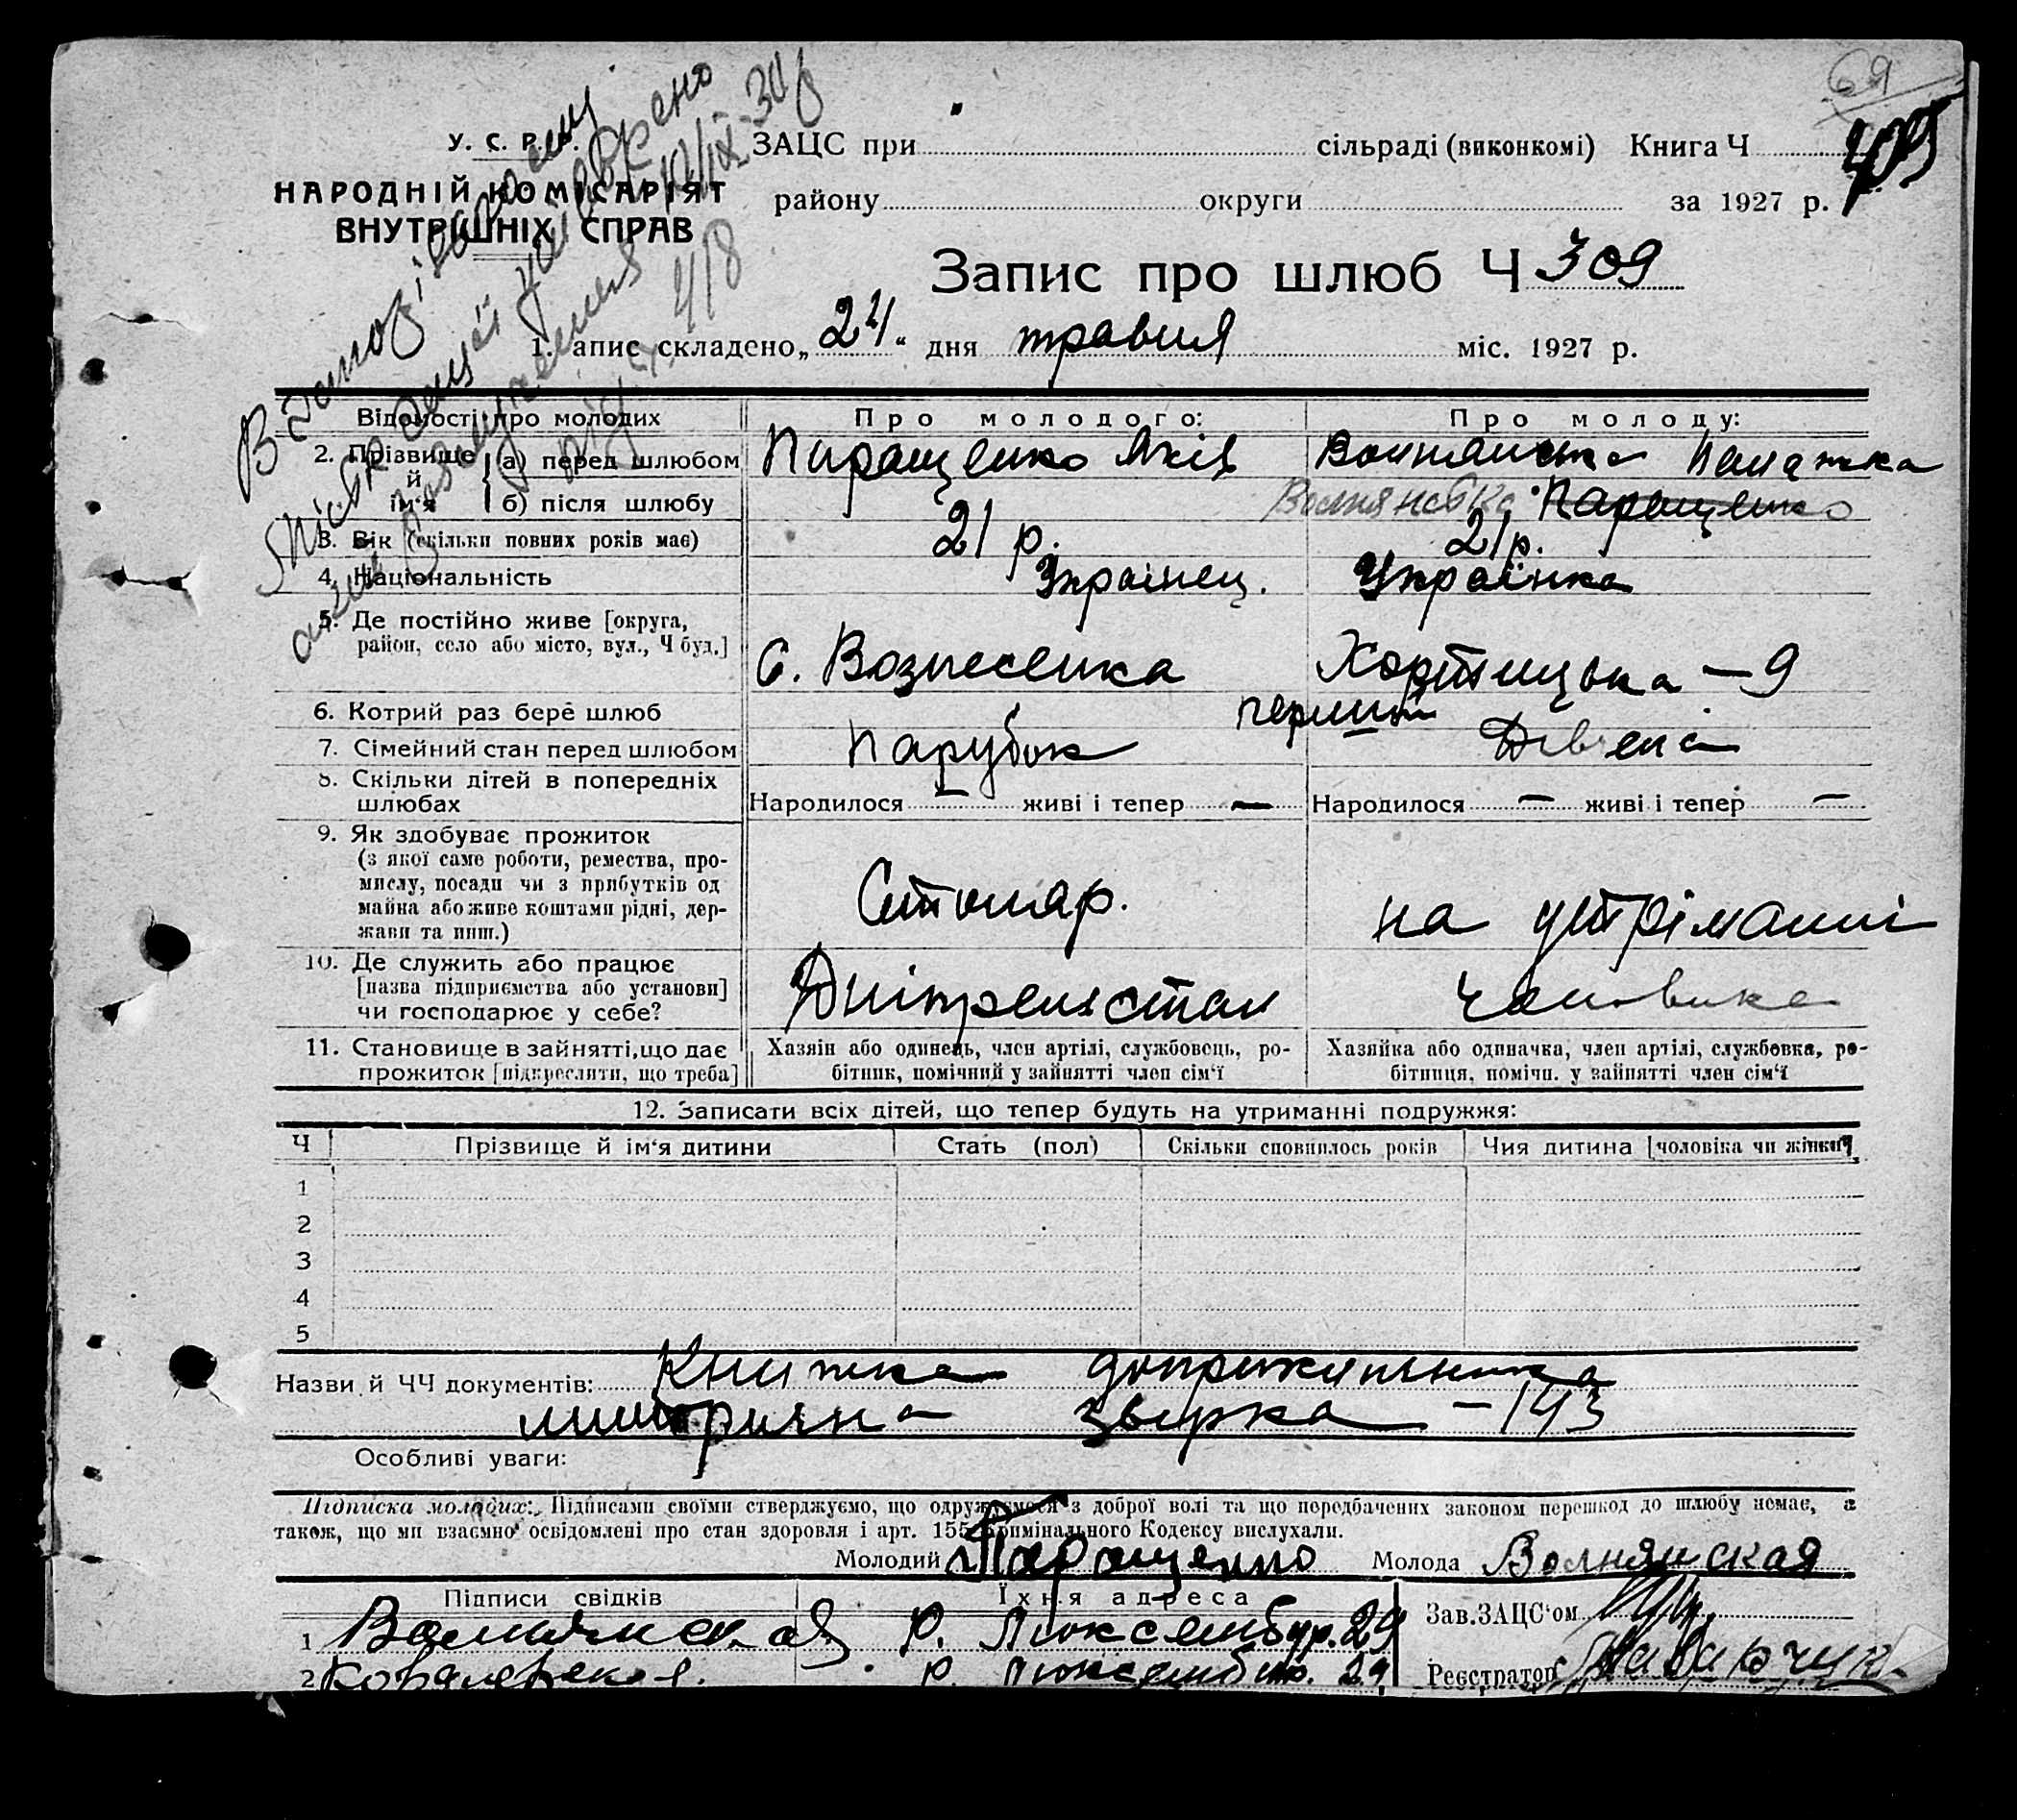 69
У. С. Р. Р.
НАРОДНІЙ КОМІСАРІЯТ
ВНУТРІШНІХ СПРАВ
ЗАЦС при сільраді (виконкомі) Книга Ч
району округи за 1927 р.
Запис про шлюб Ч 309
418
1. Запис складено „24“ дня травня міс. 1927 р.
Відомості про молодих Про молодого: Про молоду:
2. Прізвище й ім'я а) перед шлюбом Паращенко Яків Волнянська Палажка
б) після шлюбу Волнянська Паращенко
3. Вік (скільки повних років має) 21 р. 21 р.
4. Національність Українец. Українка
5. Де постійно живе [округа,
район, село або місто, вул., Ч буд.] С. Вознесенка Хортицька — 9
6. Котрий раз бере шлюб перший
7. Сімейний стан перед шлюбом Парубок Дівиця
8. Скільки дітей в попередніх
шлюбах Народилося — живі і тепер — Народилося — живі і тепер —
9. Як здобуває прожиток
(з якої саме роботи, ремества, про-
мислу, посади чи з прибутків од
майна або живе коштами рідні, дер-
жави та инш.) Столяр. на утріманні
10. Де служить або працює
[назва підприємства або установи]
чи господарює у себе? чоловіка
11. Становище в зайнятті, що дає
прожиток [підкреслити, що треба]
Хазяїн або одинець, член артілі, службовець, ро-
бітник, помічний у зайнятті член сім'ї
Хазяйка або одиначка, член артілі, службовка, ро-
бітниця, помічн. у зайнятті член сім'ї
12. Записати всіх дітей, що тепер будуть на утриманні подружжя:
Ч Прізвище й ім'я дитини Стать (пол) Скільки сповнилось років Чия дитина [чоловіка чи жінки]
1
2
3
4
5
Назви й ЧЧ документів: Книжка допризивника
метрична звірка — 143
Особливі уваги:
Підписка молодих: Підписами своїми стверджуємо, що одружуємося з доброї волі та що передбачених законом перешкод до шлюбу немає, а
також, що ми взаємно освідомлені про стан здоровля і арт. 155 Кримінального Кодексу вислухали.
Молодий Паращенко Молода Волнянская
Підписи свідків Їхня адреса Зав. ЗАЦС'ом
1 Волнянская Р. Люксембур. 29
2 Р. Люксембур. 29 Реєстратор